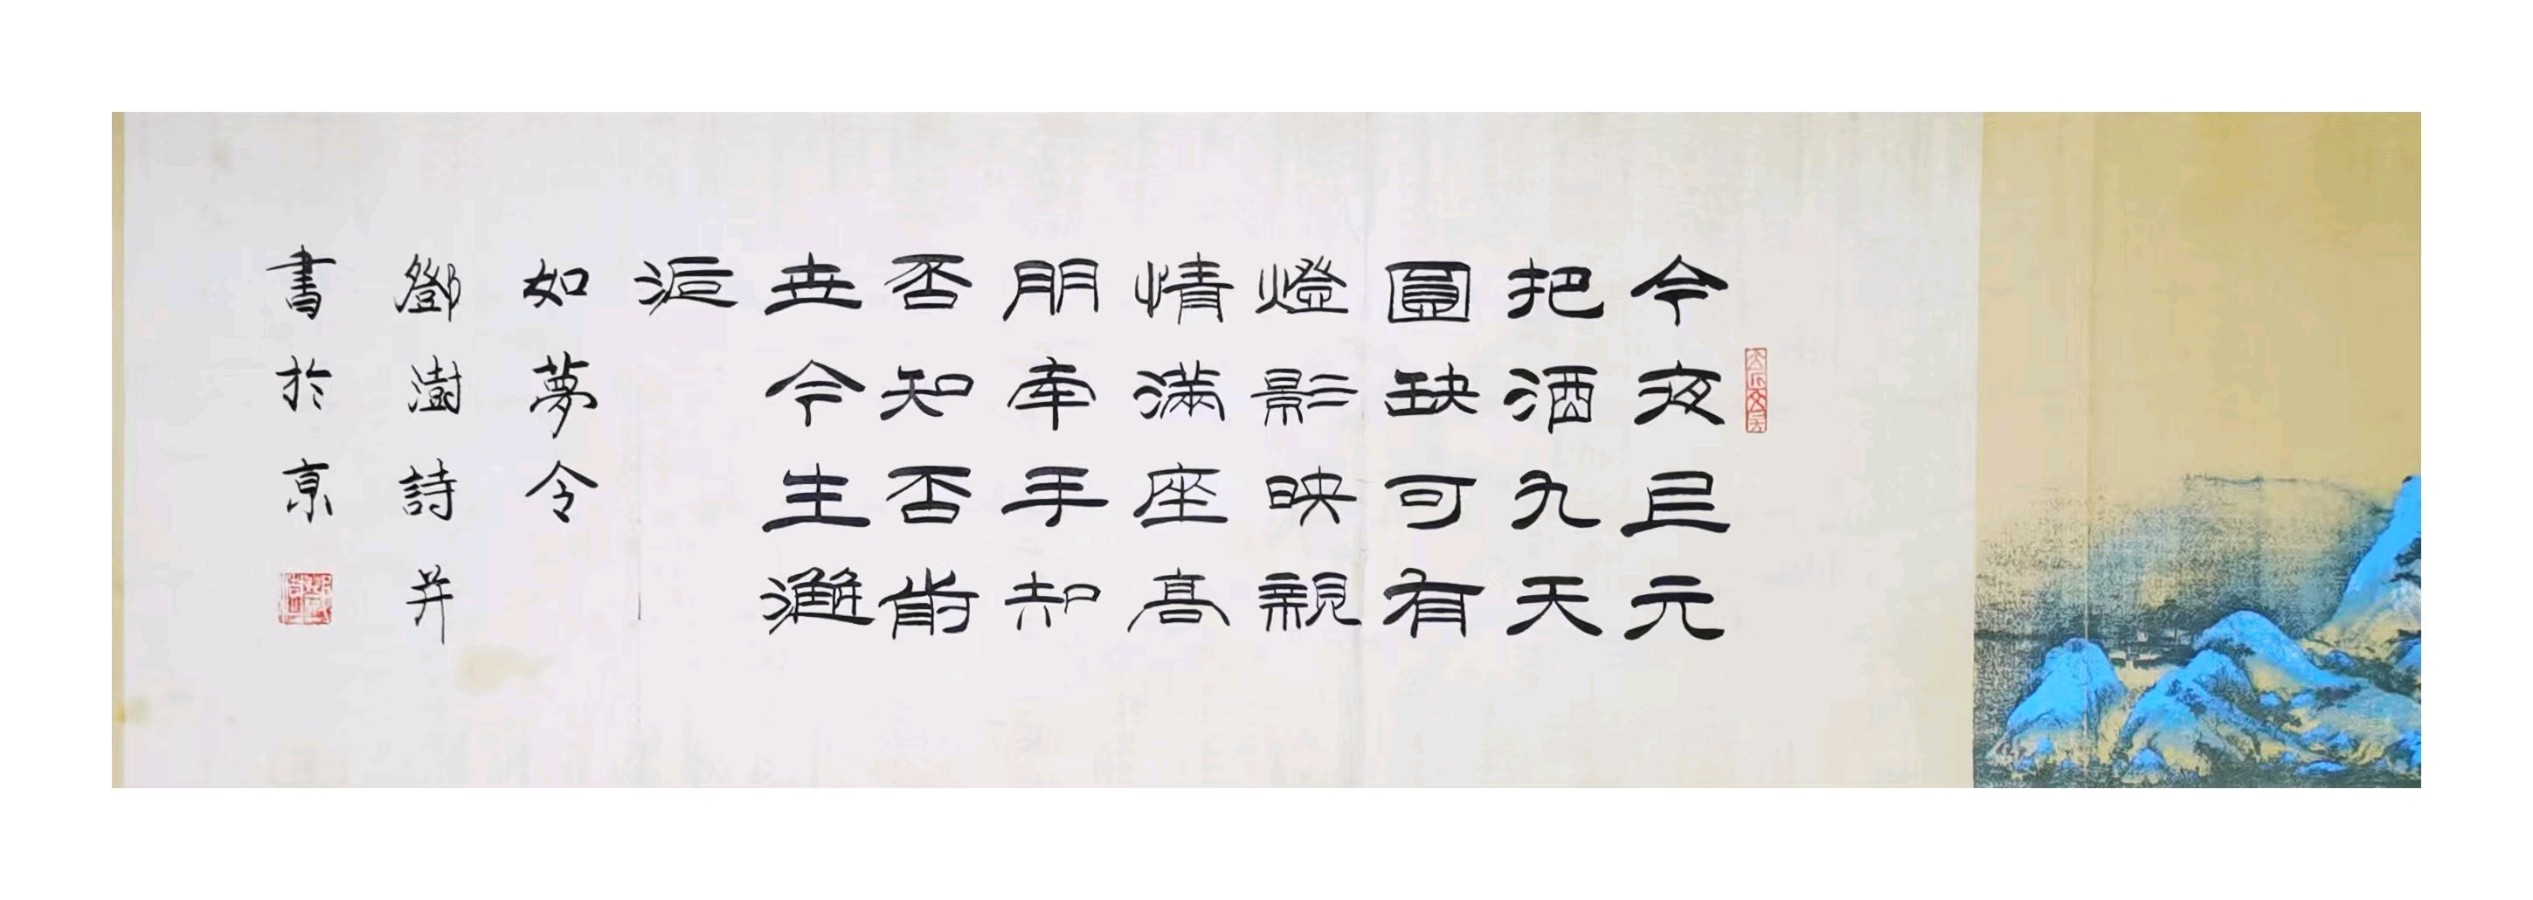 今夜且元
把酒九天
圓缺可有
燈影映親
情滿座高
朋牵手知
否知否前
世今生邂
逅
如夢令
鄧澍詩并
書於京